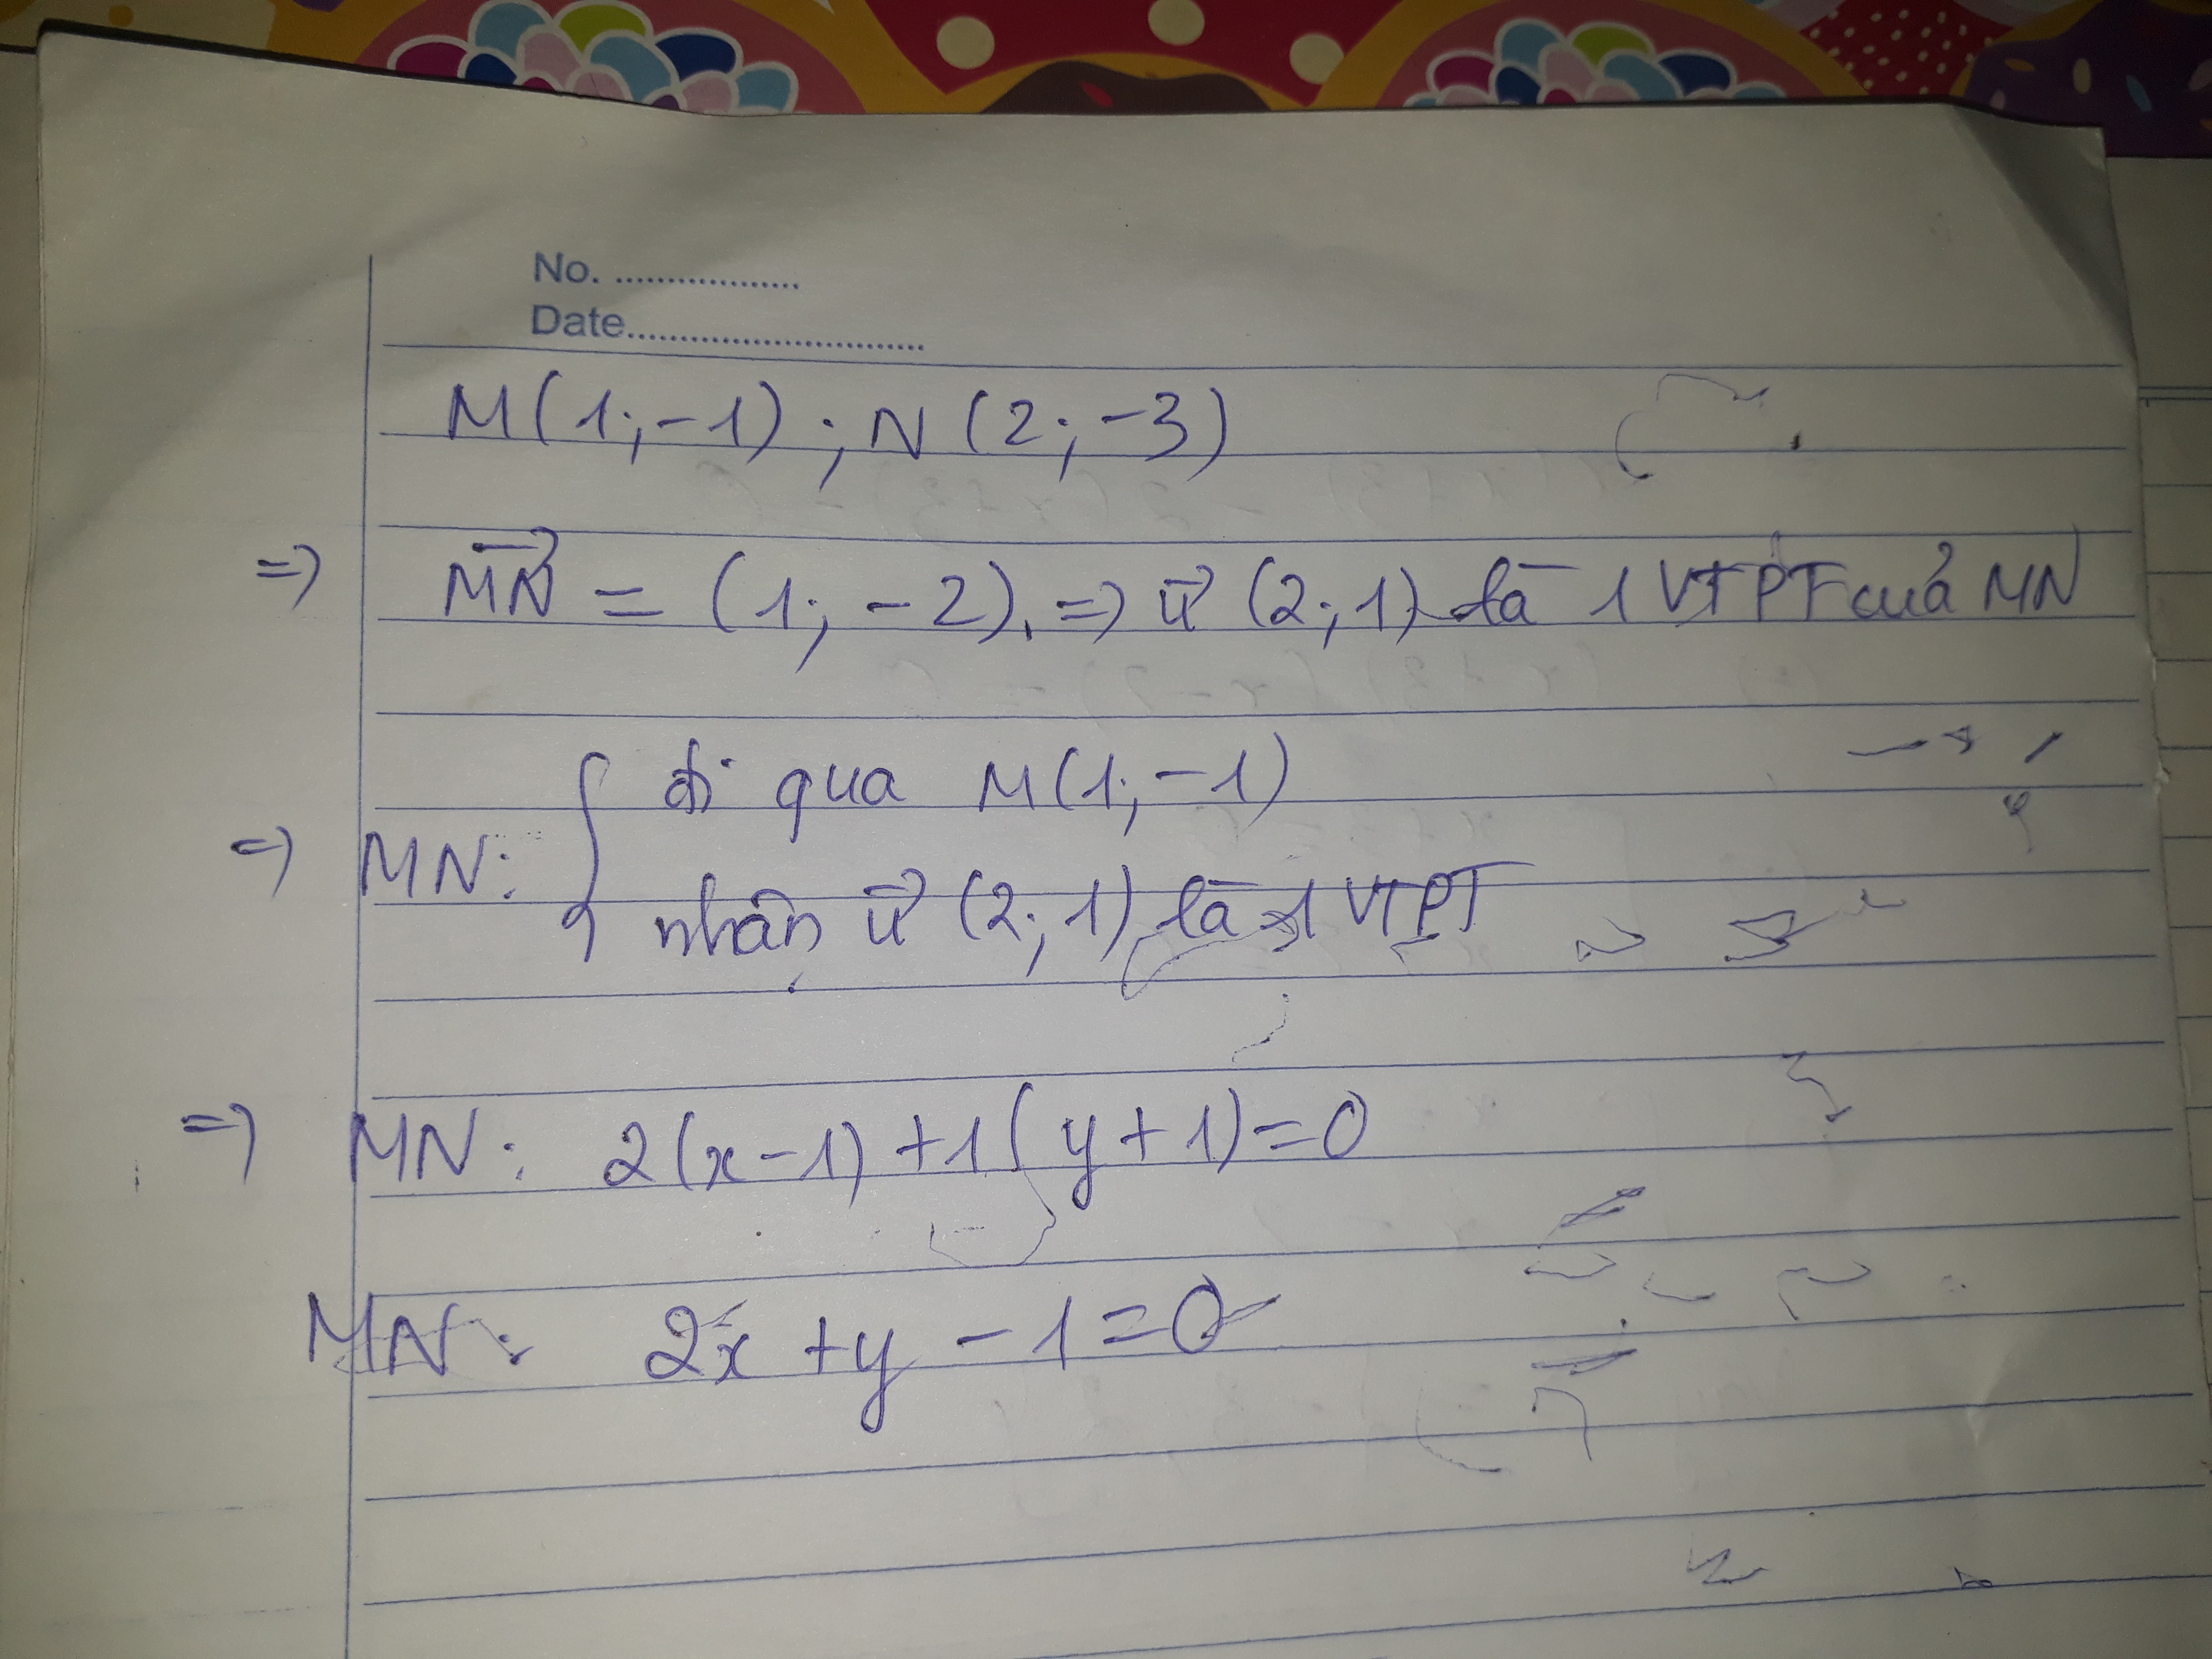 No. ...................
Date..............................
M(1;-1) ; N (2; -3)
=> MN⃗ = (1; -2). => u⃗ (2; 1) là 1 VTPT của MN
đi qua M(1;-1)
=> MN: {
nhận u⃗ (2; 1) là 1 VTPT
=> MN: 2(x-1) +1(y+1)=0
MN: 2x +y -1=0